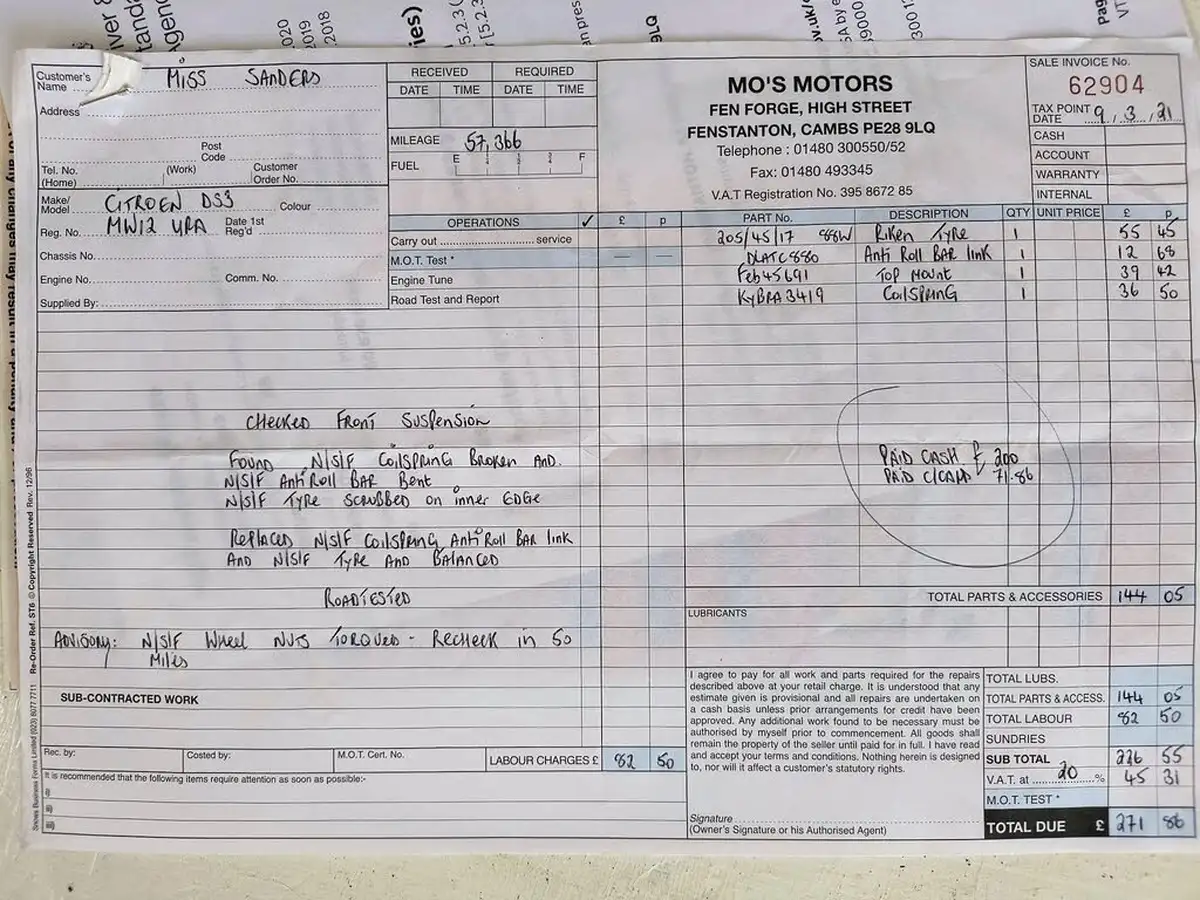 2020
2019
2018
9LQ
Customer's Name MISS SANDERS
Address
Post Code
Tel. No. (Home) (Work) Customer Order No.
Make/ Model CITROEN DS3 Colour
Reg. No. MW12 Date 1st Reg'd
Chassis No.
Engine No. Comm. No.
Supplied By:
RECEIVED REQUIRED
DATE TIME DATE TIME
MILEAGE 57,366
FUEL E ¼ ½ ¾ F
MO'S MOTORS
FEN FORGE, HIGH STREET
FENSTANTON, CAMBS PE28 9LQ
Telephone : 01480 300550/52
Fax: 01480 493345
V.A.T Registration No. 395 8672 85
SALE INVOICE No.
62904
TAX POINT DATE 9.3.21
CASH
ACCOUNT
WARRANTY
INTERNAL
OPERATIONS ✓ £ p
Carry out service
M.O.T. Test * — —
Engine Tune
Road Test and Report
PART No. DESCRIPTION QTY UNIT PRICE £ p
205/45/17 88W Riken TYRE 1 55 45
DLATC880 Anti Roll BAR link 1 12 68
Feb45691 TOP Mount 1 39 42
KYBRA3419 COILSPRING 1 36 50
CHECKED FRONT SUSPENSION
FOUND N/S/F COILSPRING BROKEN AND.
N/S/F Anti Roll BAR Bent
N/S/F TYRE SCRUBBED on inner EDGE
REPLACED N/S/F COILSPRING Anti Roll BAR link
AND N/S/F TYRE AND BALANCED
ROADTESTED
ADVISORY: N/S/F Wheel NUTS TORQUED - RECHECK in 50
Miles
PAID CASH £ 200
PAID C/CARD 71.86
TOTAL PARTS & ACCESSORIES 144 05
LUBRICANTS
SUB-CONTRACTED WORK
Rec. by: Costed by: M.O.T. Cert. No. LABOUR CHARGES £ 82 50
It is recommended that the following items require attention as soon as possible:-
i)
ii)
iii)
I agree to pay for all work and parts required for the repairs
described above at your retail charge. It is understood that any
estimate given is provisional and all repairs are undertaken on
a cash basis unless prior arrangements for credit have been
approved. Any additional work found to be necessary must be
authorised by myself prior to commencement. All goods shall
remain the property of the seller until paid for in full. I have read
and accept your terms and conditions. Nothing herein is designed
to, nor will it affect a customer's statutory rights.
Signature
(Owner's Signature or his Authorised Agent)
TOTAL LUBS.
TOTAL PARTS & ACCESS. 144 05
TOTAL LABOUR 82 50
SUNDRIES
SUB TOTAL 226 55
V.A.T. at 20 % 45 31
M.O.T. TEST *
TOTAL DUE £ 271 86
Snows Business Forms Limited (023) 8077 7711 Re-Order Ref. ST6 © Copyright Reserved Rev. 12/96